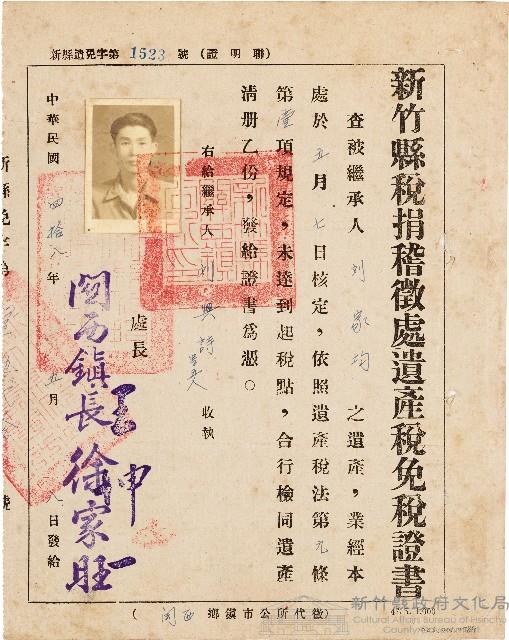 新縣遺免字第1523號（證明聯）
新竹縣稅捐稽徵處遺產稅免稅證書
查被繼承人劉家均之遺產，業經本
處於五月七日核定，依照遺產稅法第九條
第壹項規定，未達到起稅點，合行檢同遺產
清册乙份，發給證書爲憑。
右給繼承人劉興詩 收執
處長
關西鎮長徐家旺
中華民國四拾八年五月 日發給
（徵代所公市鎮鄉 關西）
新竹縣政府文化局
Cultural Affairs Bureau of Hsinchu
County